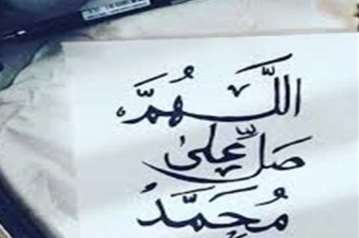 اللَّهُمَّ
صَلِّ عَلَىٰ
مُحَمَّدٍ